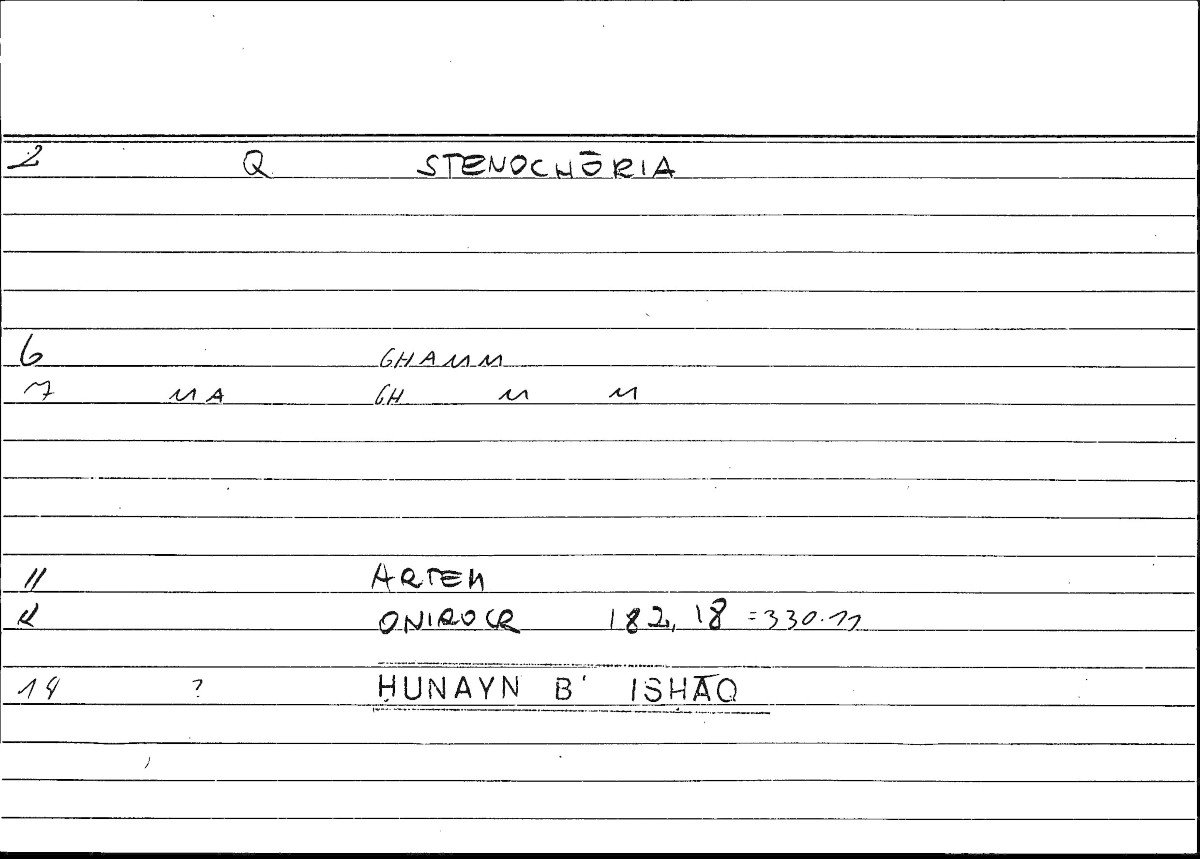 2 Q STENOCHŌRIA
6 GHAMM
7 MA GH M M
11 ARTEM
12 ONIROCR 182, 18 =330.11
14 ? ḤUNAYN B' ISḤĀQ